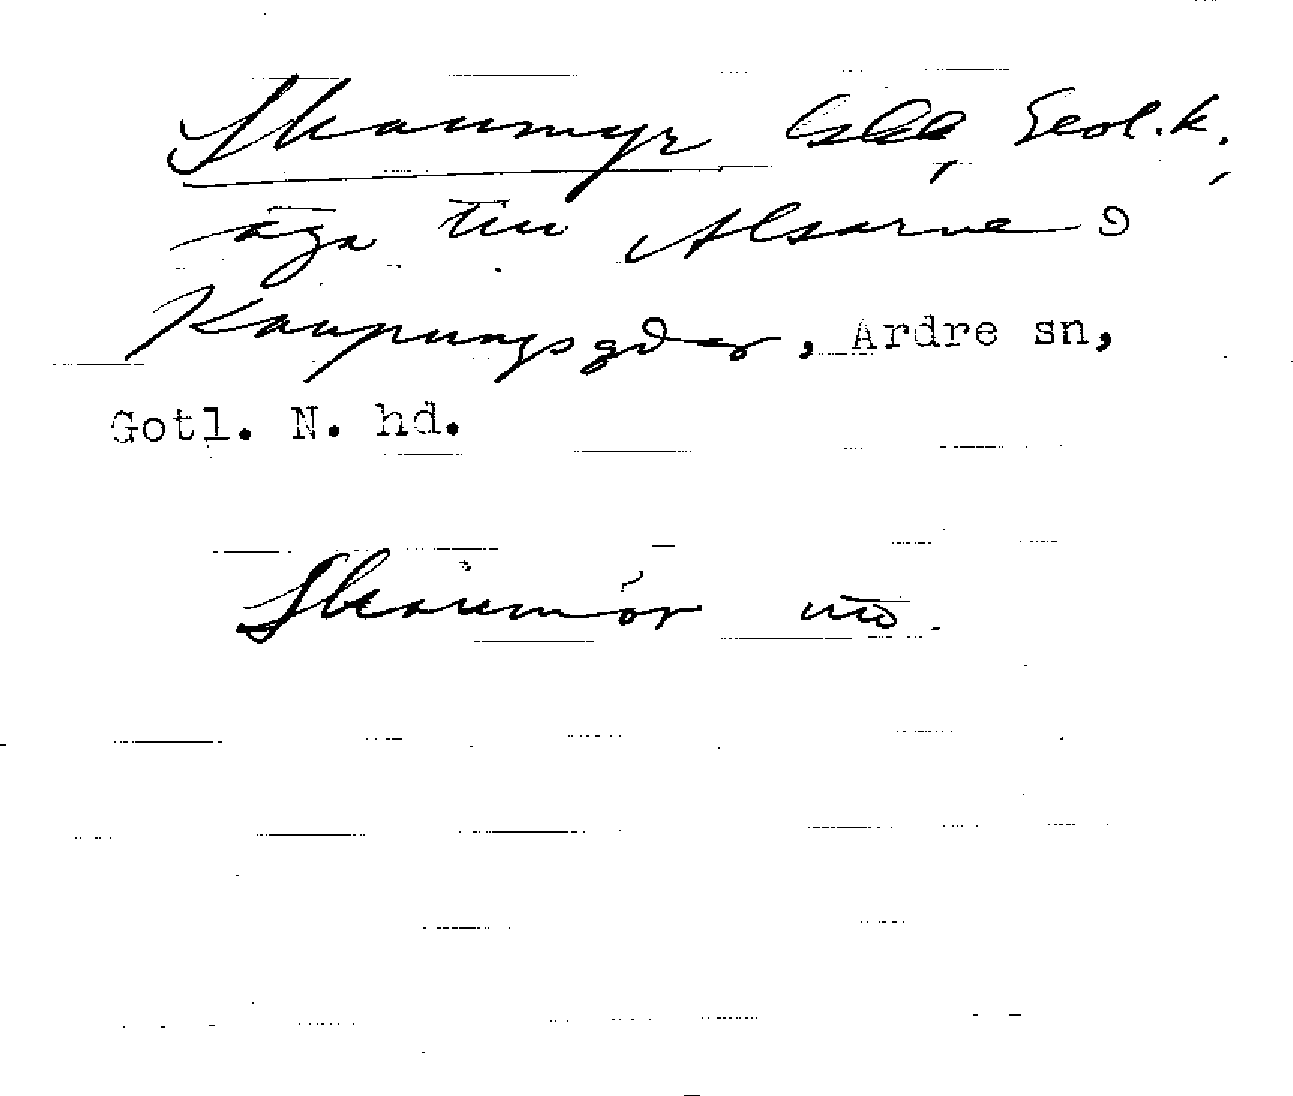 Skaumyr Gbl, Geol.k.,
äga till Alsarve o
Kaupungsgdar, Ardre sn,
Gotl. N. hd.
Skaumör